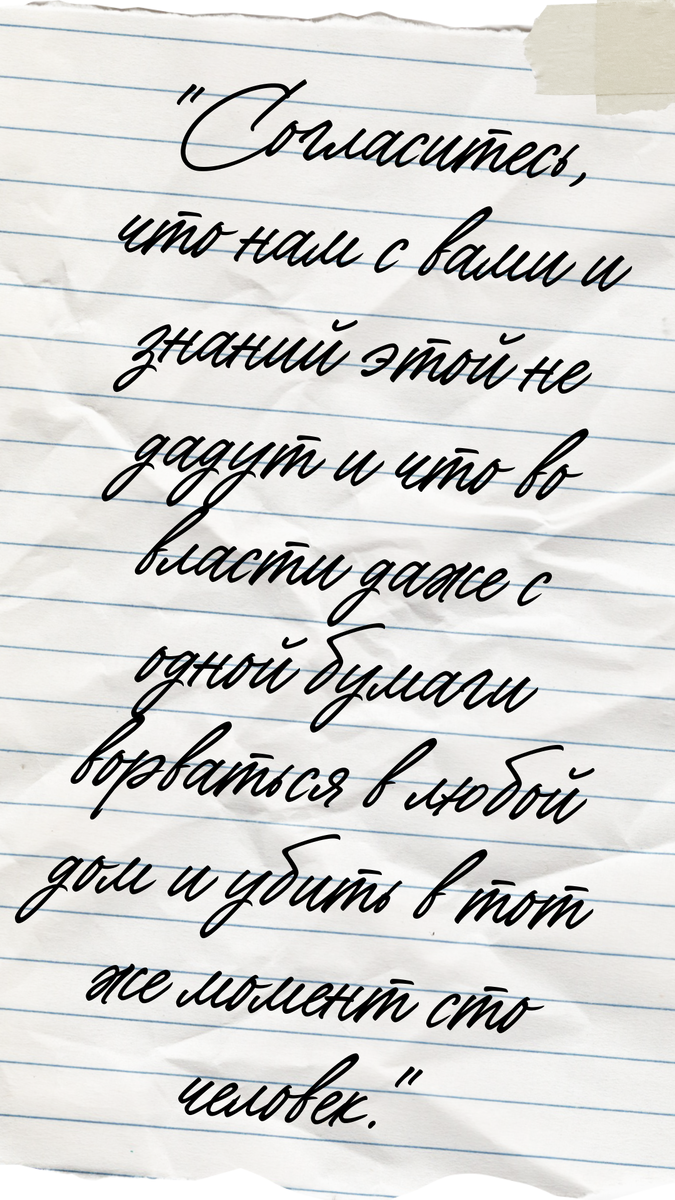 "Согласитесь,
что нам с вами и
знаний этой не
дадут и что во
власти даже с
одной бумаги
ворваться в любой
дом и убить в тот
же момент сто
человек."